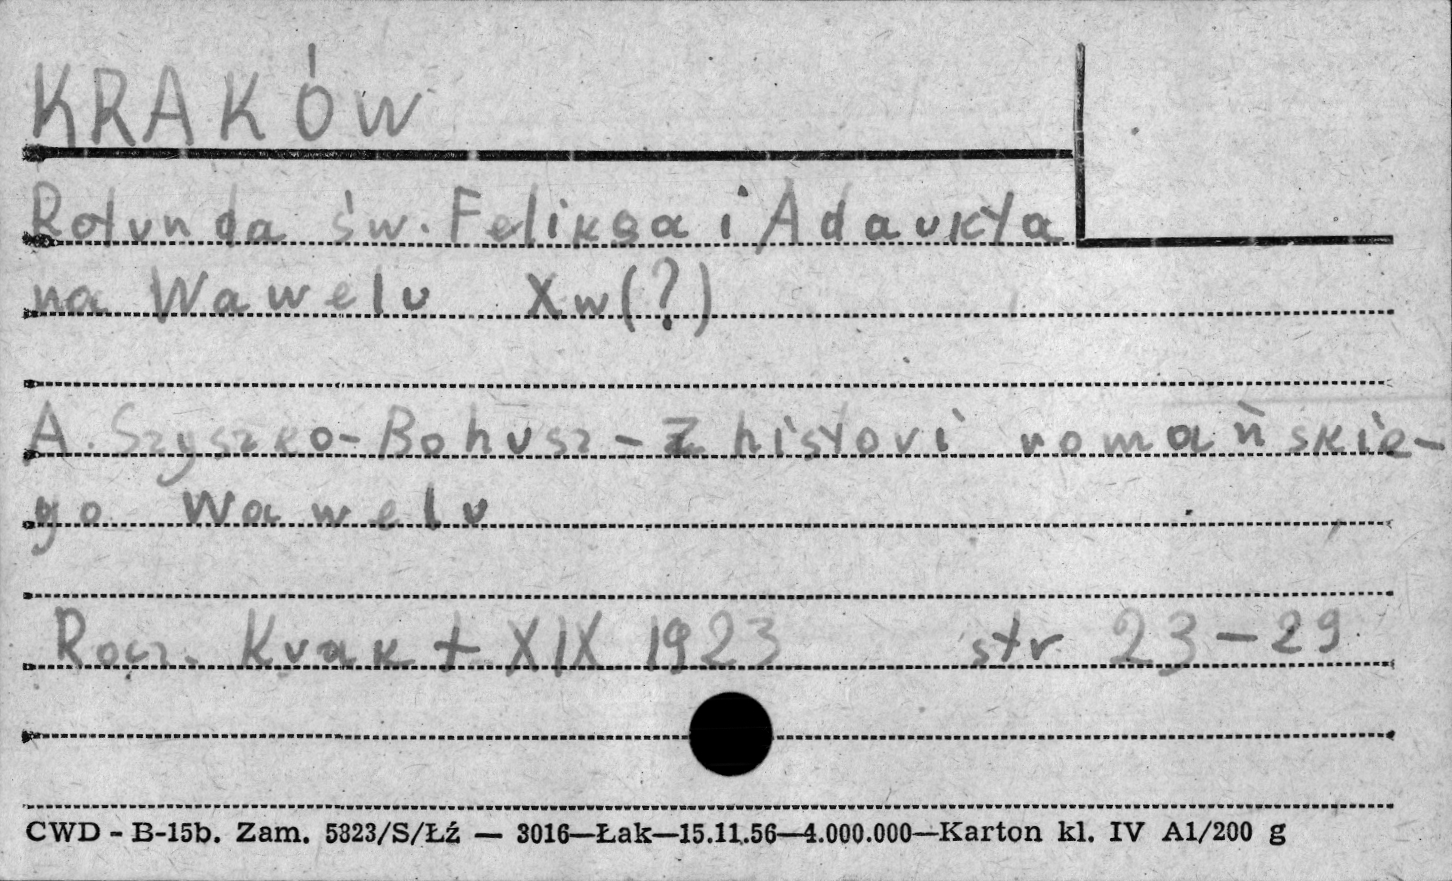 KRAKÓW
Rotunda św. Feliksa i Adaukta
na Wawelu Xw(?)
A. Szyszko-Bohusz - Z histori romańskie-
go Wawelu
Rocz. Krak t XIX 1923 str 23-29
CWD - B-15b. Zam. 5323/S/Łź — 3016—Łak—15.11.56—4.000.000—Karton kl. IV A1/200 g